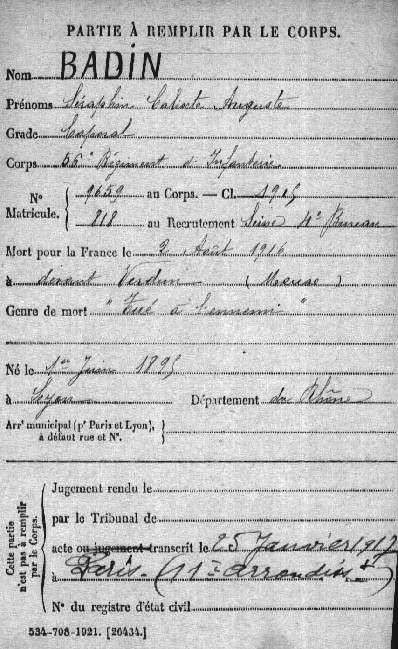 PARTIE À REMPLIR PAR LE CORPS.
Nom BADIN
Prénoms Séraphin Calixte Auguste
Grade Caporal
Corps 55e Régiment d'Infanterie
N° Matricule. { 9659 au Corps. — Cl. 1915
818 au Recrutement Seine 4e Bureau
Mort pour la France le 2 Août 1916
à devant Verdun (Meuse)
Genre de mort "Tué à l'ennemi"
Né le 1er Juin 1895
à Lyon Département du Rhône
Arrt municipal (pr Paris et Lyon),
à défaut rue et N°.
Cette partie n'est pas à remplir par le Corps.
Jugement rendu le
par le Tribunal de
acte ou jugement transcrit le 25 Janvier 1917
à Paris. (11e arrondisst)
N° du registre d'état civil
534-708-1921. [26434.]